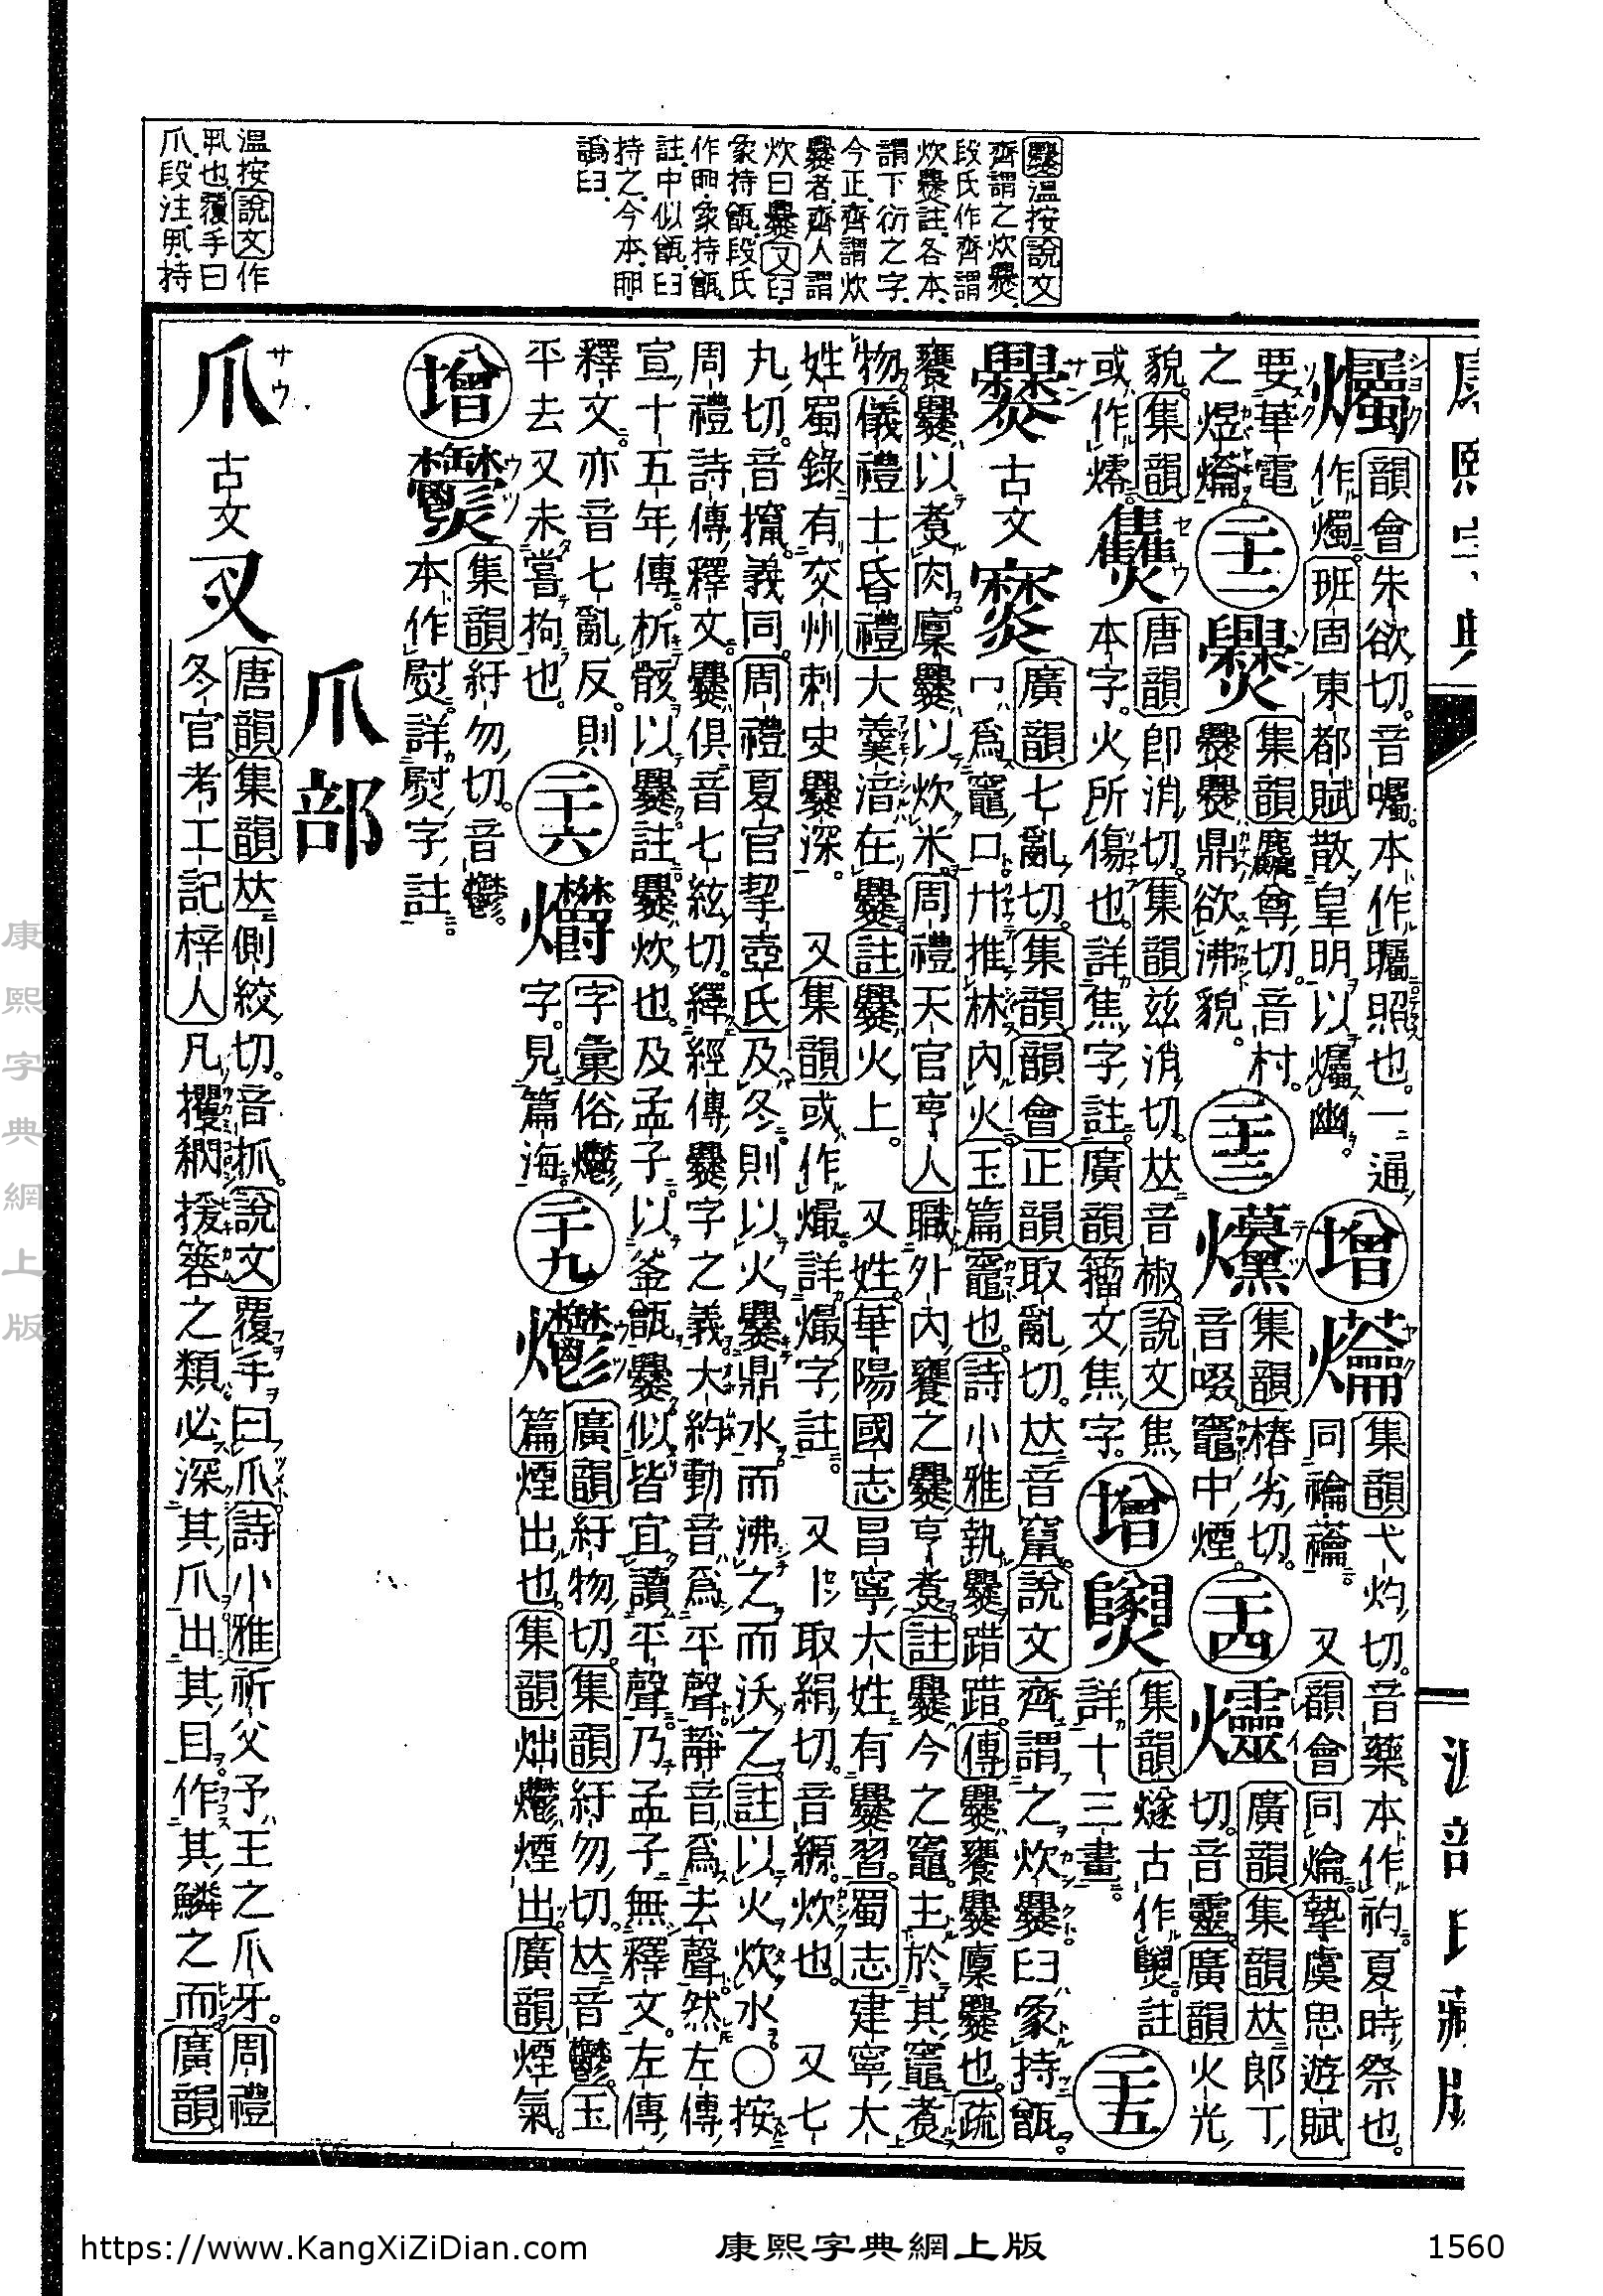 爨溫按說文
齊謂之炊爨。
段氏作齊謂
炊爨註。各本
謂下衍之字。
今正。齊謂炊
爨者。齊人謂
炊曰爨。又𦥑
象持甑。段氏
作𦥑。象持甑。
註。中似甑。臼
持之。今本。𦥑
譌臼。
溫按說文作
𠃨也。覆手曰
爪。段注。𠃨。持
爥
韻會朱欲切。音囑。本作矚。照也。一通
作燭。班固東都賦散皇明以爥幽。
增
集韻弋灼切。音藥。本作礿。夏時祭也。
同禴蘥。 又韻會同爚。摯虞思遊賦
要華電
之煜爚
二十二
爨
集韻麤尊切。音村。
爨爨鼎欲沸貌。
二十三
集韻樁劣切。
音啜。竈中煙。
二十四
爧
廣韻集韻𠀤郎丁
切。音靈。廣韻火光
貌。集韻
或作燯。
唐韻卽消切。集韻兹消切。𠀤音椒。說文焦
本字。火所傷也。詳焦字註。廣韻籀文焦字。
增
集韻燧古作 註
詳十三畫。
二十五
爨
古文
廣韻七亂切。集韻韻會正韻取亂切。𠀤音竄。說文齊謂之炊爨。𦥑象持甑。
冖爲竈口。廾推林內火。玉篇竈也。詩小雅執爨踖踖。傳爨饔爨廩爨也。疏
饔爨以煑肉。廩爨以炊米。周禮天官亨人職外內饔之爨亨煑。註爨今之竈。主於其竈煑
物。儀禮士昏禮大羹湆在爨。註爨火上。 又姓。華陽國志昌寧大姓有爨習。蜀志建寧大
姓蜀錄有交州刺史爨深。 又集韻或作熶。詳熶字註。 又丨取絹切。音縓。炊也。 又七
丸切。音攛。義同。周禮夏官挈壺氏及冬則以火爨鼎水而沸之而沃之。註以火炊水。○按
周禮詩傳釋文爨俱音七絃切。繹經傳爨字之義大約動音爲平聲靜音爲去聲。然左傳
宣十五年傳析骸以爨註爨炊也。及孟子以釜甑爨似皆宜讀平聲乃孟子無釋文左傳
釋文。亦音七亂反。則
平去又未嘗拘也。
二十六
字彙俗
字。見篇海。
二十九
廣韻紆物切。集韻紆勿切。𠀤音鬱。玉
篇煙出也。集韻煙出。廣韻煙氣。
增
集韻紆勿切。音鬱。
本作熨。詳熨字註。
爪部
爪
古文
唐韻集韻𠀤側絞切。音抓。說文覆手曰爪。詩小雅祈父予王之爪牙。周禮
冬官考工記梓人凡攫閷援簭之類必深其爪出其目作其鱗之而。廣韻
康熙字典網上版
https://www.KangXiZiDian.com
康熙字典網上版
1560